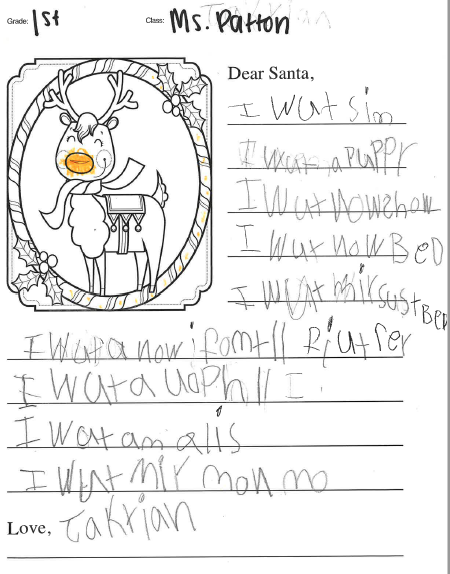 Grade: 1st Class: Ms. Patton
Dear Santa,
I Wat sin
I Wat a PUPPY
I Wat now show
I Wat now BeD
I Wat mir sust BeD
I Wat a now
I Wat a
I Wat am alls
I Wat mir mon mo
Love, Takrian